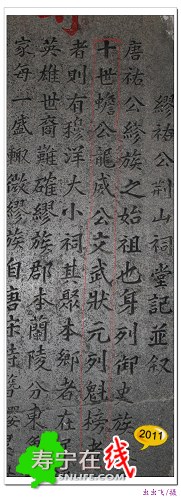 繆祐公荆山祠堂記並叙
唐祐公繆族之始祖也身列御史族
十世蟾公龍威公文武狀元列魁榜者
者則有穆洋大小祠其聚本鄉者在
英雄世裔難確繆族郡本蘭陵分東
家每一盛輙徵繆族自唐宋時
2011
寿宁在线
SNLIFE.COM
出出飞/摄